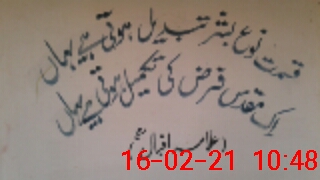 قسمت نوع بشر تبدیل ہوتی ہے یہاں
اک مقدس فرض کی تکمیل ہوتی ہے یہاں
(علامہ اقبالؒ)
16-02-21 10:48